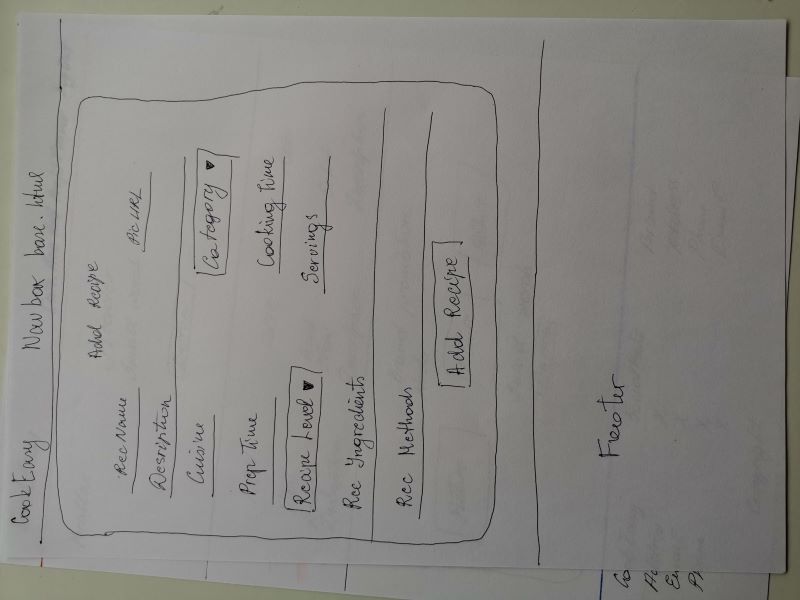 CookEasy Navbar base.html
Add Recipe
Rec Name Pic URL
Desription
Cuisine Category ▼
Prep Time Cooking Time
Recipe Level ▼ Servings
Rec Ingredients
Rec Methods
Add Recipe
Footer